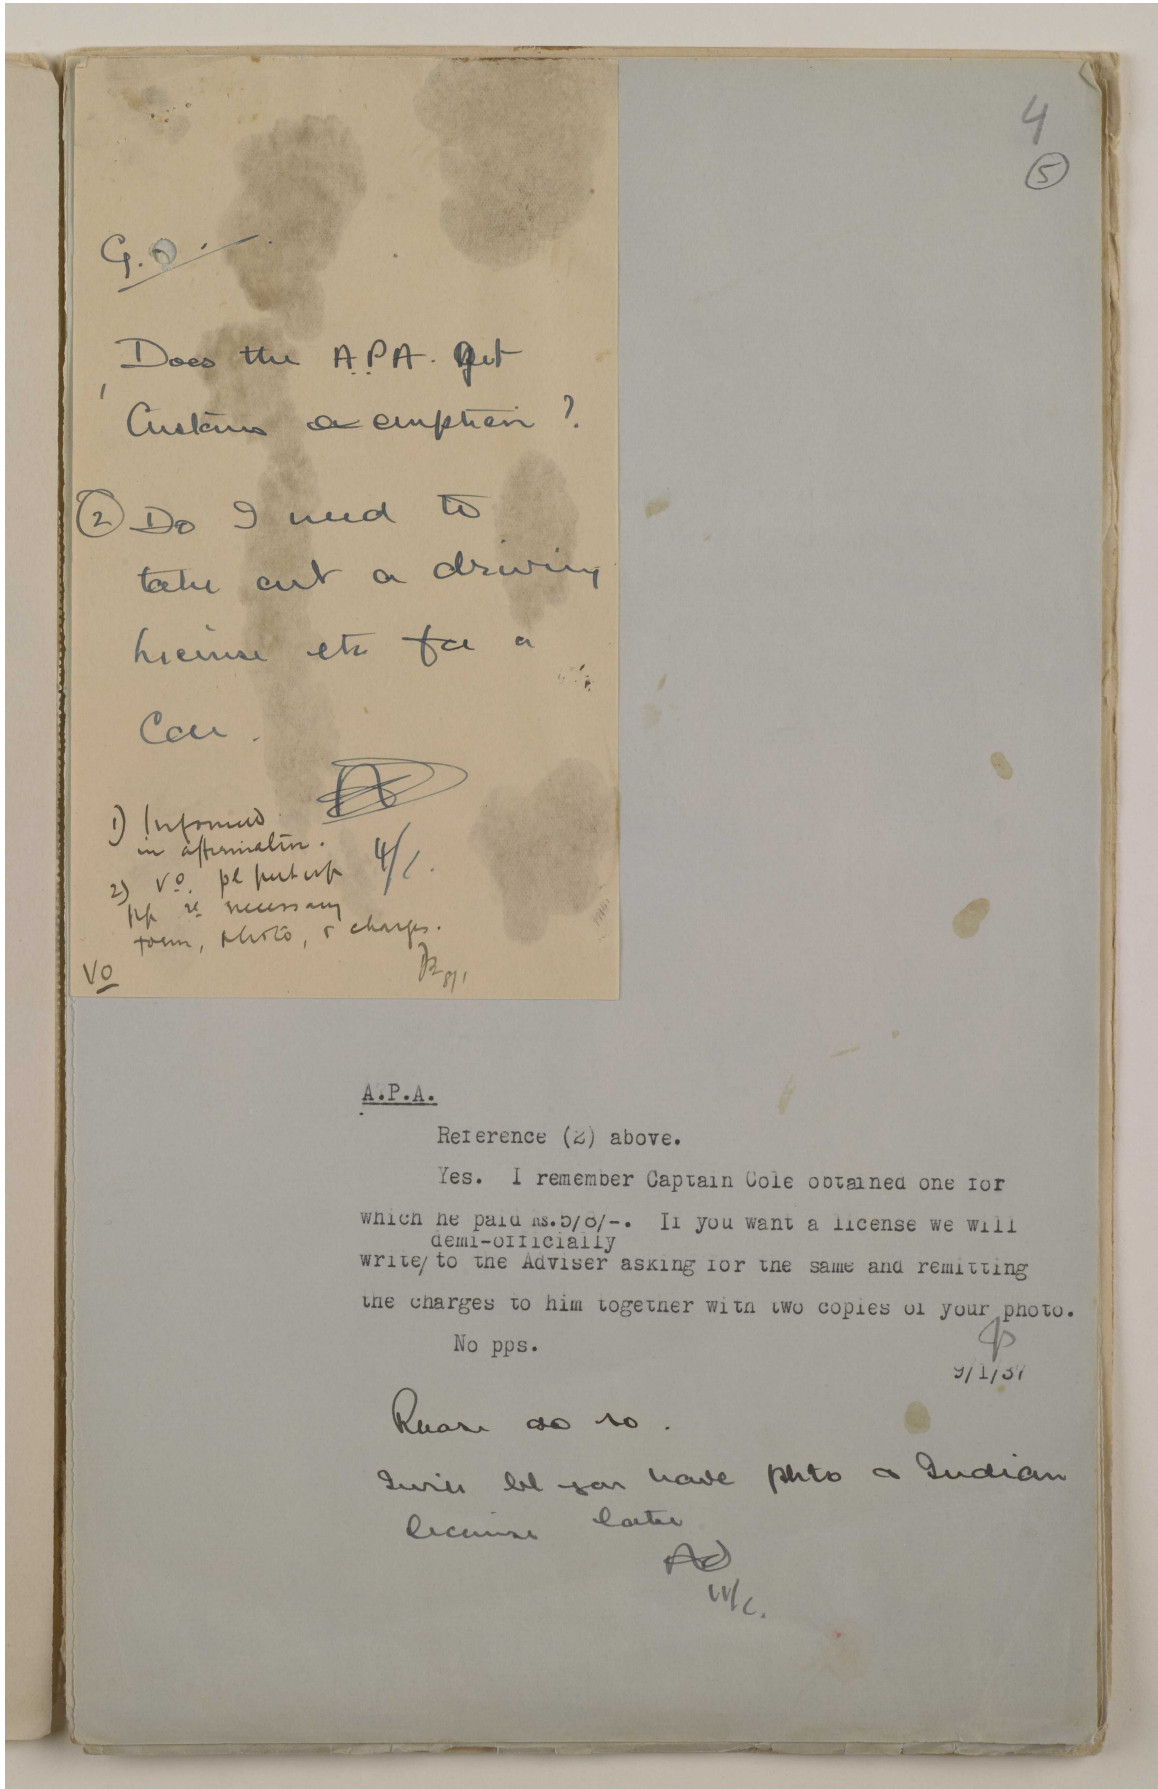 4
5
G.O.
Does the A.P.A. get
Customs exemption ?
2 Do I need to
take out a driving
license etc for a
Car.
4/1.
1) Informed
in affirmative.
2) V.O. pl put up
pp re necessary
form, photo, & charges.
8/1
VO
A.P.A.
Reference (2) above.
Yes. I remember Captain Cole obtained one for
which he paid Rs.5/8/-. If you want a license we will
demi-officially
write/ to the Adviser asking for the same and remitting
the charges to him together with two copies of your photo.
No pps.
9/1/37
Please do so.
I will let you have photo & Indian
license later